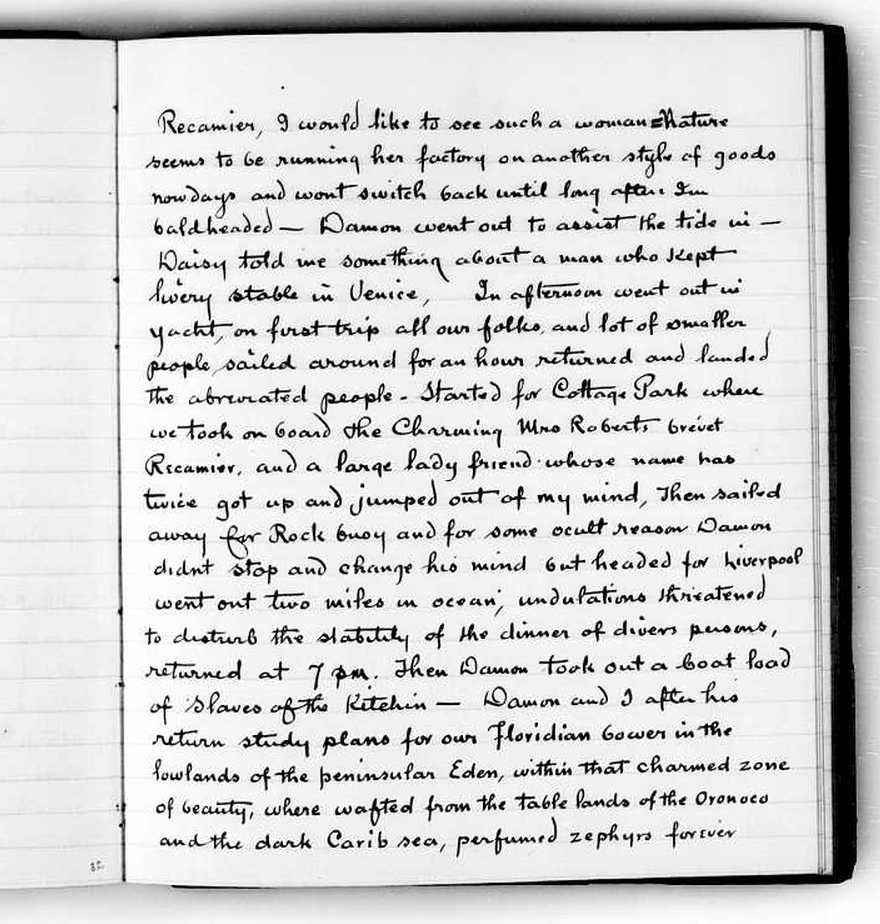 Recamier, I would like to see such a woman = Nature
seems to be running her factory on another style of goods
nowdays and wont switch back until long after Im
baldheaded — Damon went out to assist the tide in —
Daisy told me something about a man who kept
livery stable in Venice, In afternoon went out in
yacht, on first trip all our folks, and lot of smaller
people, sailed around for an hour returned and landed
the abreviated people - Started for Cottage Park where
we took on board the Charming Mrs Roberts brevet
Recamier, and a large lady friend whose name has
twice got up and jumped out of my mind, Then sailed
away for Rock buoy and for some ocult reason Damon
didnt stop and change his mind but headed for Liverpool
went out two miles in ocean, undulations threatened
to disturb the stability of the dinner of divers persons,
returned at 7 pm. Then Damon took out a boat load
of Slaves of the Kitchin — Damon and I after his
return study plans for our Floridian bower in the
lowlands of the peninsular Eden, within that charmed zone
of beauty, where wafted from the table lands of the Oronoco
and the dark Carib sea, perfumed zephyrs forever